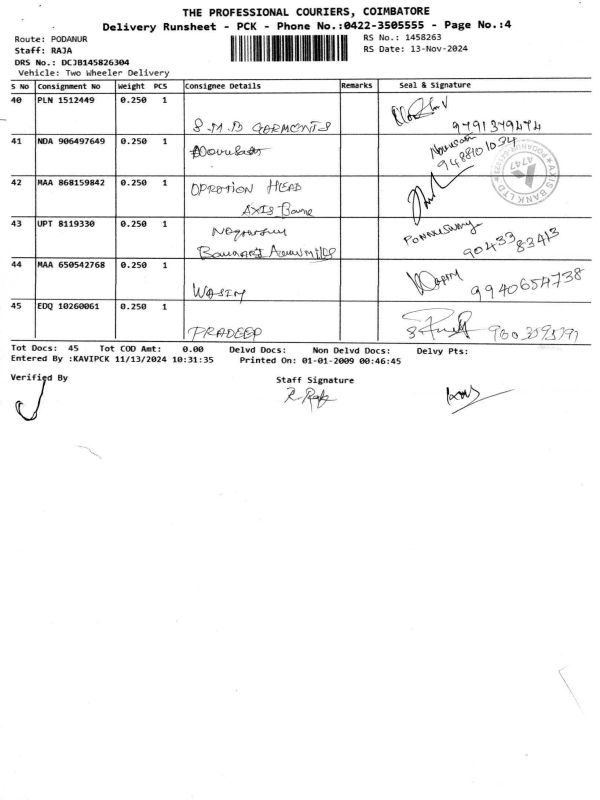 THE PROFESSIONAL COURIERS, COIMBATORE
Delivery Runsheet - PCK - Phone No.:0422-3505555 - Page No.:4
Route: PODANUR
RS No.: 1458263
Staff: RAJA
RS Date: 13-Nov-2024
DRS No.: DCJB145826304
Vehicle: Two Wheeler Delivery
S No Consignment No Weight PCS Consignee Details Remarks Seal & Signature
40 PLN 1512449 0.250 1
S.M.B GARMENTS
9791379474
41 NDA 906497649 0.250 1
9488101034
42 MAA 868159842 0.250 1 OPROTION HEAD
AXIS
AXIS BANK LTD
4747
43 UPT 8119330 0.250 1
90433 83413
44 MAA 650542768 0.250 1
WASIM
9940654738
45 EDQ 10260061 0.250 1
PRADEEP
Tot Docs: 45 Tot COD Amt: 0.00 Delvd Docs: Non Delvd Docs: Delvy Pts:
Entered By :KAVIPCK 11/13/2024 10:31:35 Printed On: 01-01-2009 00:46:45
Verified By
Staff Signature
R. Raja